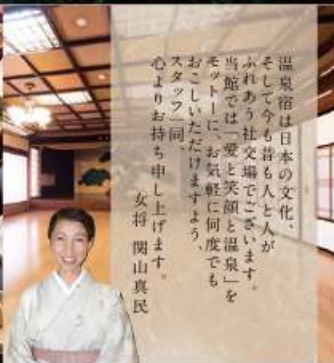 温泉宿は日本の文化、
そして今も昔も人と人が
ふれあう社交場でございます。
当館では「愛と笑顔と温泉」を
モットーに、お気軽に何度でも
おこしいただけますよう、
スタッフ一同、
心よりお待ち申し上げます。
女将 関山真民